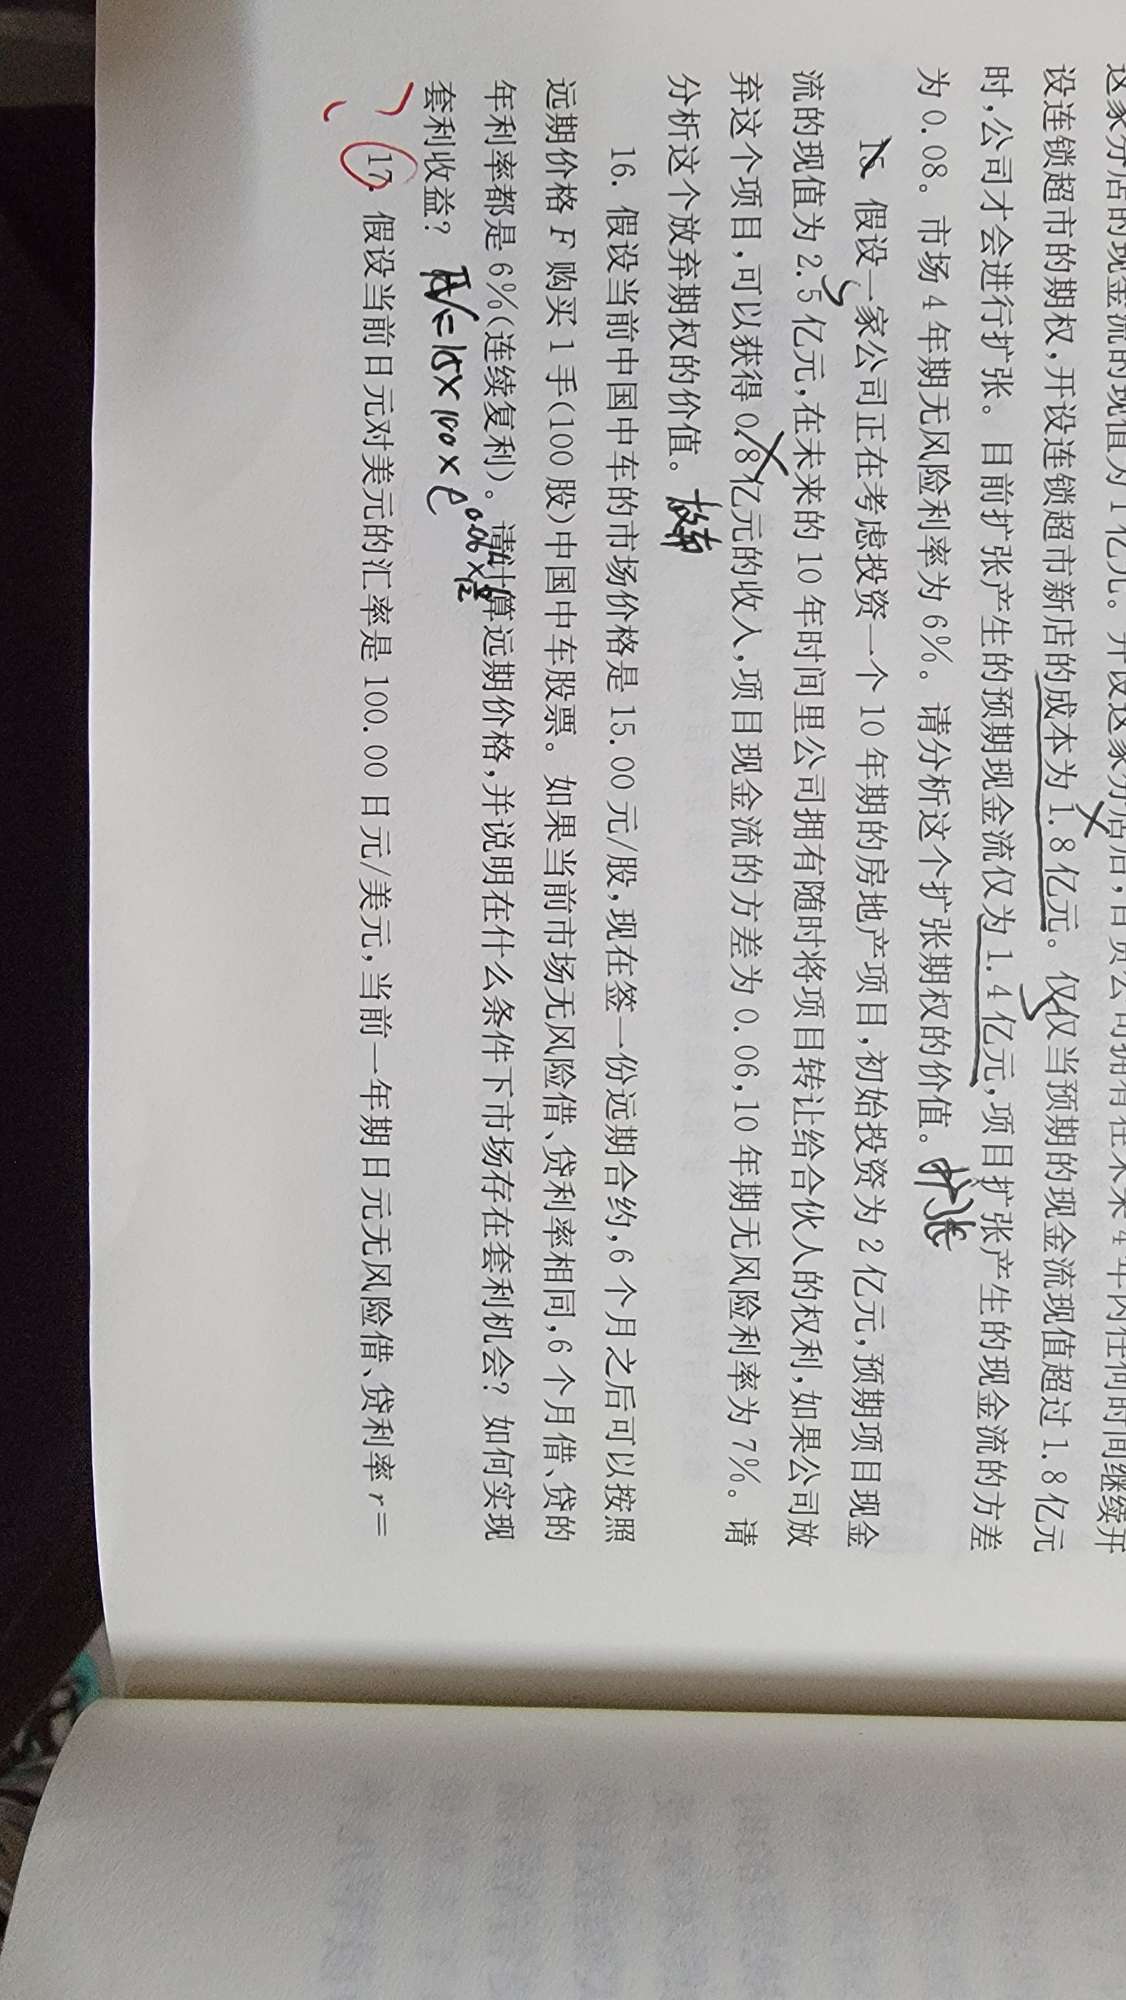 这家分店的现金流的现值为1亿元。开设这家分店后,百货公司拥有在未来4年内任何时间继续开
设连锁超市的期权,开设连锁超市新店的成本为1.8亿元。仅仅当预期的现金流现值超过1.8亿元
时,公司才会进行扩张。目前扩张产生的预期现金流仅为1.4亿元,项目扩张产生的现金流的方差
为0.08。市场4年期无风险利率为6%。请分析这个扩张期权的价值。扩张
15. 假设一家公司正在考虑投资一个10年期的房地产项目,初始投资为2亿元,预期项目现金
流的现值为2.5亿元,在未来的10年时间里公司拥有随时将项目转让给合伙人的权利,如果公司放
弃这个项目,可以获得0.8亿元的收入,项目现金流的方差为0.06,10年期无风险利率为7%。请
分析这个放弃期权的价值。放弃
16. 假设当前中国中车的市场价格是15.00元/股,现在签一份远期合约,6个月之后可以按照
远期价格F购买1手(100股)中国中车股票。如果当前市场无风险借、贷利率相同,6个月借、贷的
年利率都是6%(连续复利)。请计算远期价格,并说明在什么条件下市场存在套利机会?如何实现
套利收益? =15×100×e^0.06×
17. 假设当前日元对美元的汇率是100.00日元/美元,当前一年期日元无风险借、贷利率r=